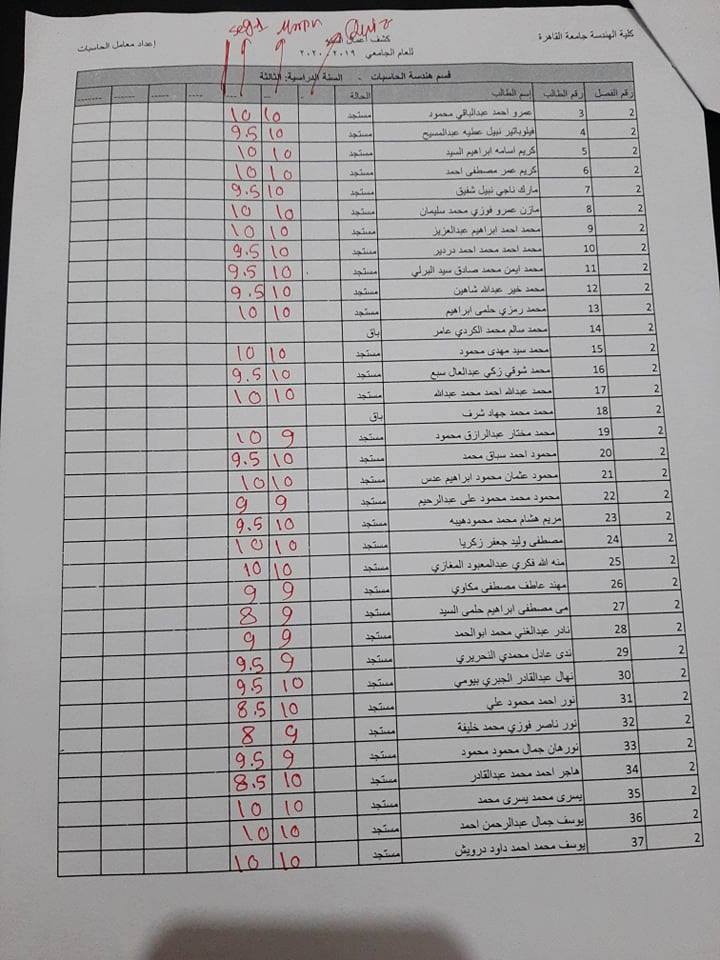 كلية الهندسة جامعة القاهرة
كشف أعمال السنة
إعداد معامل الحاسبات
للعام الجامعي ٢٠١٩/٢٠٢٠
Quiz
قسم هندسة الحاسبات - السنة الدراسية: الثالثة
رقم الفصل رقم الطالب إسم الطالب الحالة
2 3 عمرو احمد عبدالباقي محمود مستجد 10 10
2 4 فيلوباتير نبيل عطيه عبدالمسيح مستجد 10 9.5
2 5 كريم اسامه ابراهيم السيد مستجد 10 10
2 6 كريم عمر مصطفى احمد مستجد 10 10
2 7 مارك ناجي نبيل شفيق مستجد 10 9.5
2 8 مازن عمرو فوزي محمد سليمان مستجد 10 10
2 9 محمد احمد ابراهيم عبدالعزيز مستجد 10 10
2 10 محمد احمد محمد احمد دردير مستجد 10 9.5
2 11 محمد ايمن محمد صادق سيد البرلي مستجد 10 9.5
2 12 محمد خير عبدالله شاهين مستجد 10 9.5
2 13 محمد رمزي حلمى ابراهيم مستجد 10 10
2 14 محمد سالم محمد الكردي عامر باق
2 15 محمد سيد مهدى محمود مستجد 10 10
2 16 محمد شوقي زكي عبدالعال سبع مستجد 10 9.5
2 17 محمد عبدالله احمد محمد عبدالله مستجد 10 10
2 18 محمد محمد جهاد شرف باق
2 19 محمد مختار عبدالرازق محمود مستجد 9 10
2 20 محمود احمد سباق محمد مستجد 10 9.5
2 21 محمود عثمان محمود ابراهيم عدس مستجد 10 10
2 22 محمود محمد محمود على عبدالرحيم مستجد 9 9
2 23 مريم هشام محمد محمودهيبه مستجد 10 9.5
2 24 مصطفى وليد جعفر زكريا مستجد 10 10
2 25 منه الله فكري عبدالمعبود المغازي مستجد 10 10
2 26 مهند عاطف مصطفى مكاوي مستجد 9 9
2 27 مى مصطفى ابراهيم حلمى السيد مستجد 9 8
2 28 نادر عبدالغني محمد ابوالحمد مستجد 9 9
2 29 ندى عادل محمدي النحريري مستجد 9 9.5
2 30 نهال عبدالقادر الجبري بيومي مستجد 10 9.5
2 31 نور احمد محمود علي مستجد 10 8.5
2 32 نور ناصر فوزي محمد خليفة مستجد 9 8
2 33 نورهان جمال محمود محمود مستجد 9 9.5
2 34 هاجر احمد محمد عبدالقادر مستجد 10 8.5
2 35 يسرى محمد يسرى محمد مستجد 10 10
2 36 يوسف جمال عبدالرحمن احمد مستجد 10 10
2 37 يوسف محمد احمد داود درويش مستجد 10 10